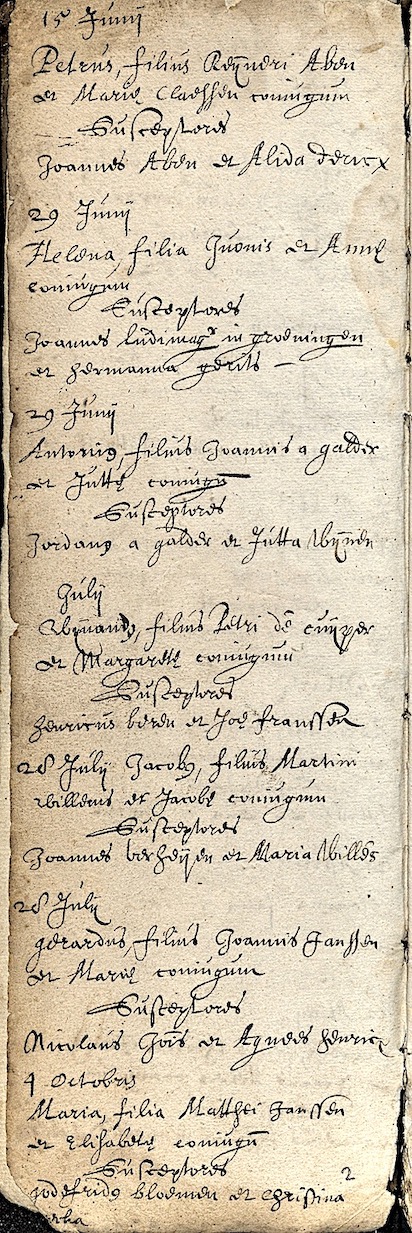 15 Junij
Petrus, filius Reijneri Aben
et Marię Claessen coniugum
Susceptores
Joannes Aben et Alida dericx
29 Junij
Helena, filia Iuonis et Annę
coniugum
Susceptores
Joannes ludimagr in groeningen
et hermanna gerits
29 Junij
Antonius, filius Joannis a galder
et Juttę coniugū
Susceptores
Jordanus a galder et Jutta Wijnen
Julij
Wijnandus, filius Petri de cuijper
et Margaretę coniugum
Susceptores
henricus beren et Joē franssen
28 Julij Jacobus, filius Martini
willems et Jacobę coniugum
Susceptores
Joannes verheijen et Maria Willēs
28 Julij
gerardus, filius Joannis Janssen
et Marię coniugum
Susceptores
Nicolaus Joīs et Agnees henricx
4 Octobris
Maria, filia Matthei Janssen
et Elisabetę coniugū
Susceptores
godefridus bloemen et Christina
2